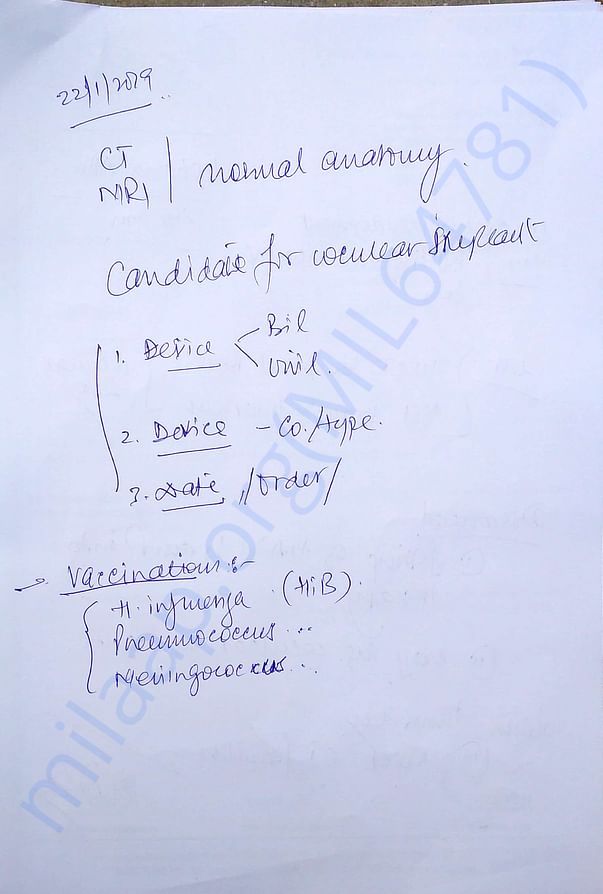 22/1/2019
CT
MRI | normal anatomy.
Candidate for coculear Implant
1. Device < Bil
Unil.
2. Device - Co./type.
3. Date, /Order/
Vaccinations :-
H. influenza (HiB).
Pneumococcus ..
Meningococcus ..
milaap.org(MIL64781)